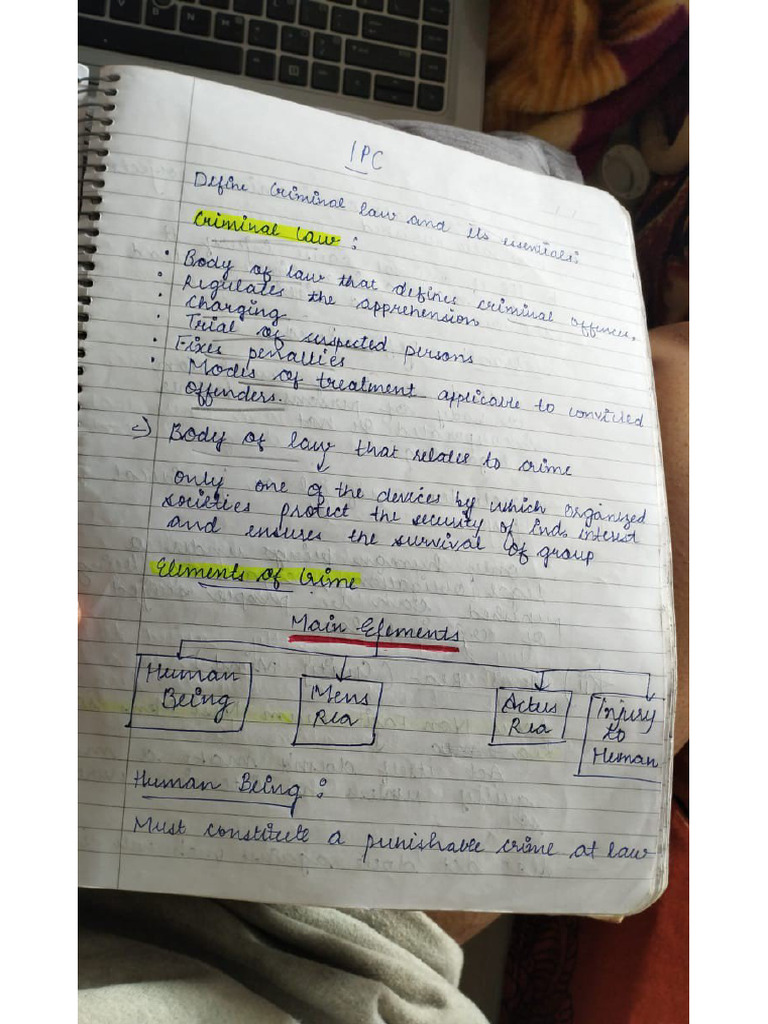 IPC
Define Criminal law and its essentials:
Criminal Law :
• Body of law that defines criminal offences,
• Regulates the apprehension
• Charging
• Trial of suspected persons
• Fixes penalties
• Modes of treatment applicable to convicted
offenders.
Body of law that relates to crime
only one of the devices by which organized
societies protect the security of Inds interest
and ensures the survival of group
Elements of Crime
Main Elements
Human Being
Mens Rea
Actus Rea
Injury to Human
Human Being :
Must constitute a punishable crime at law